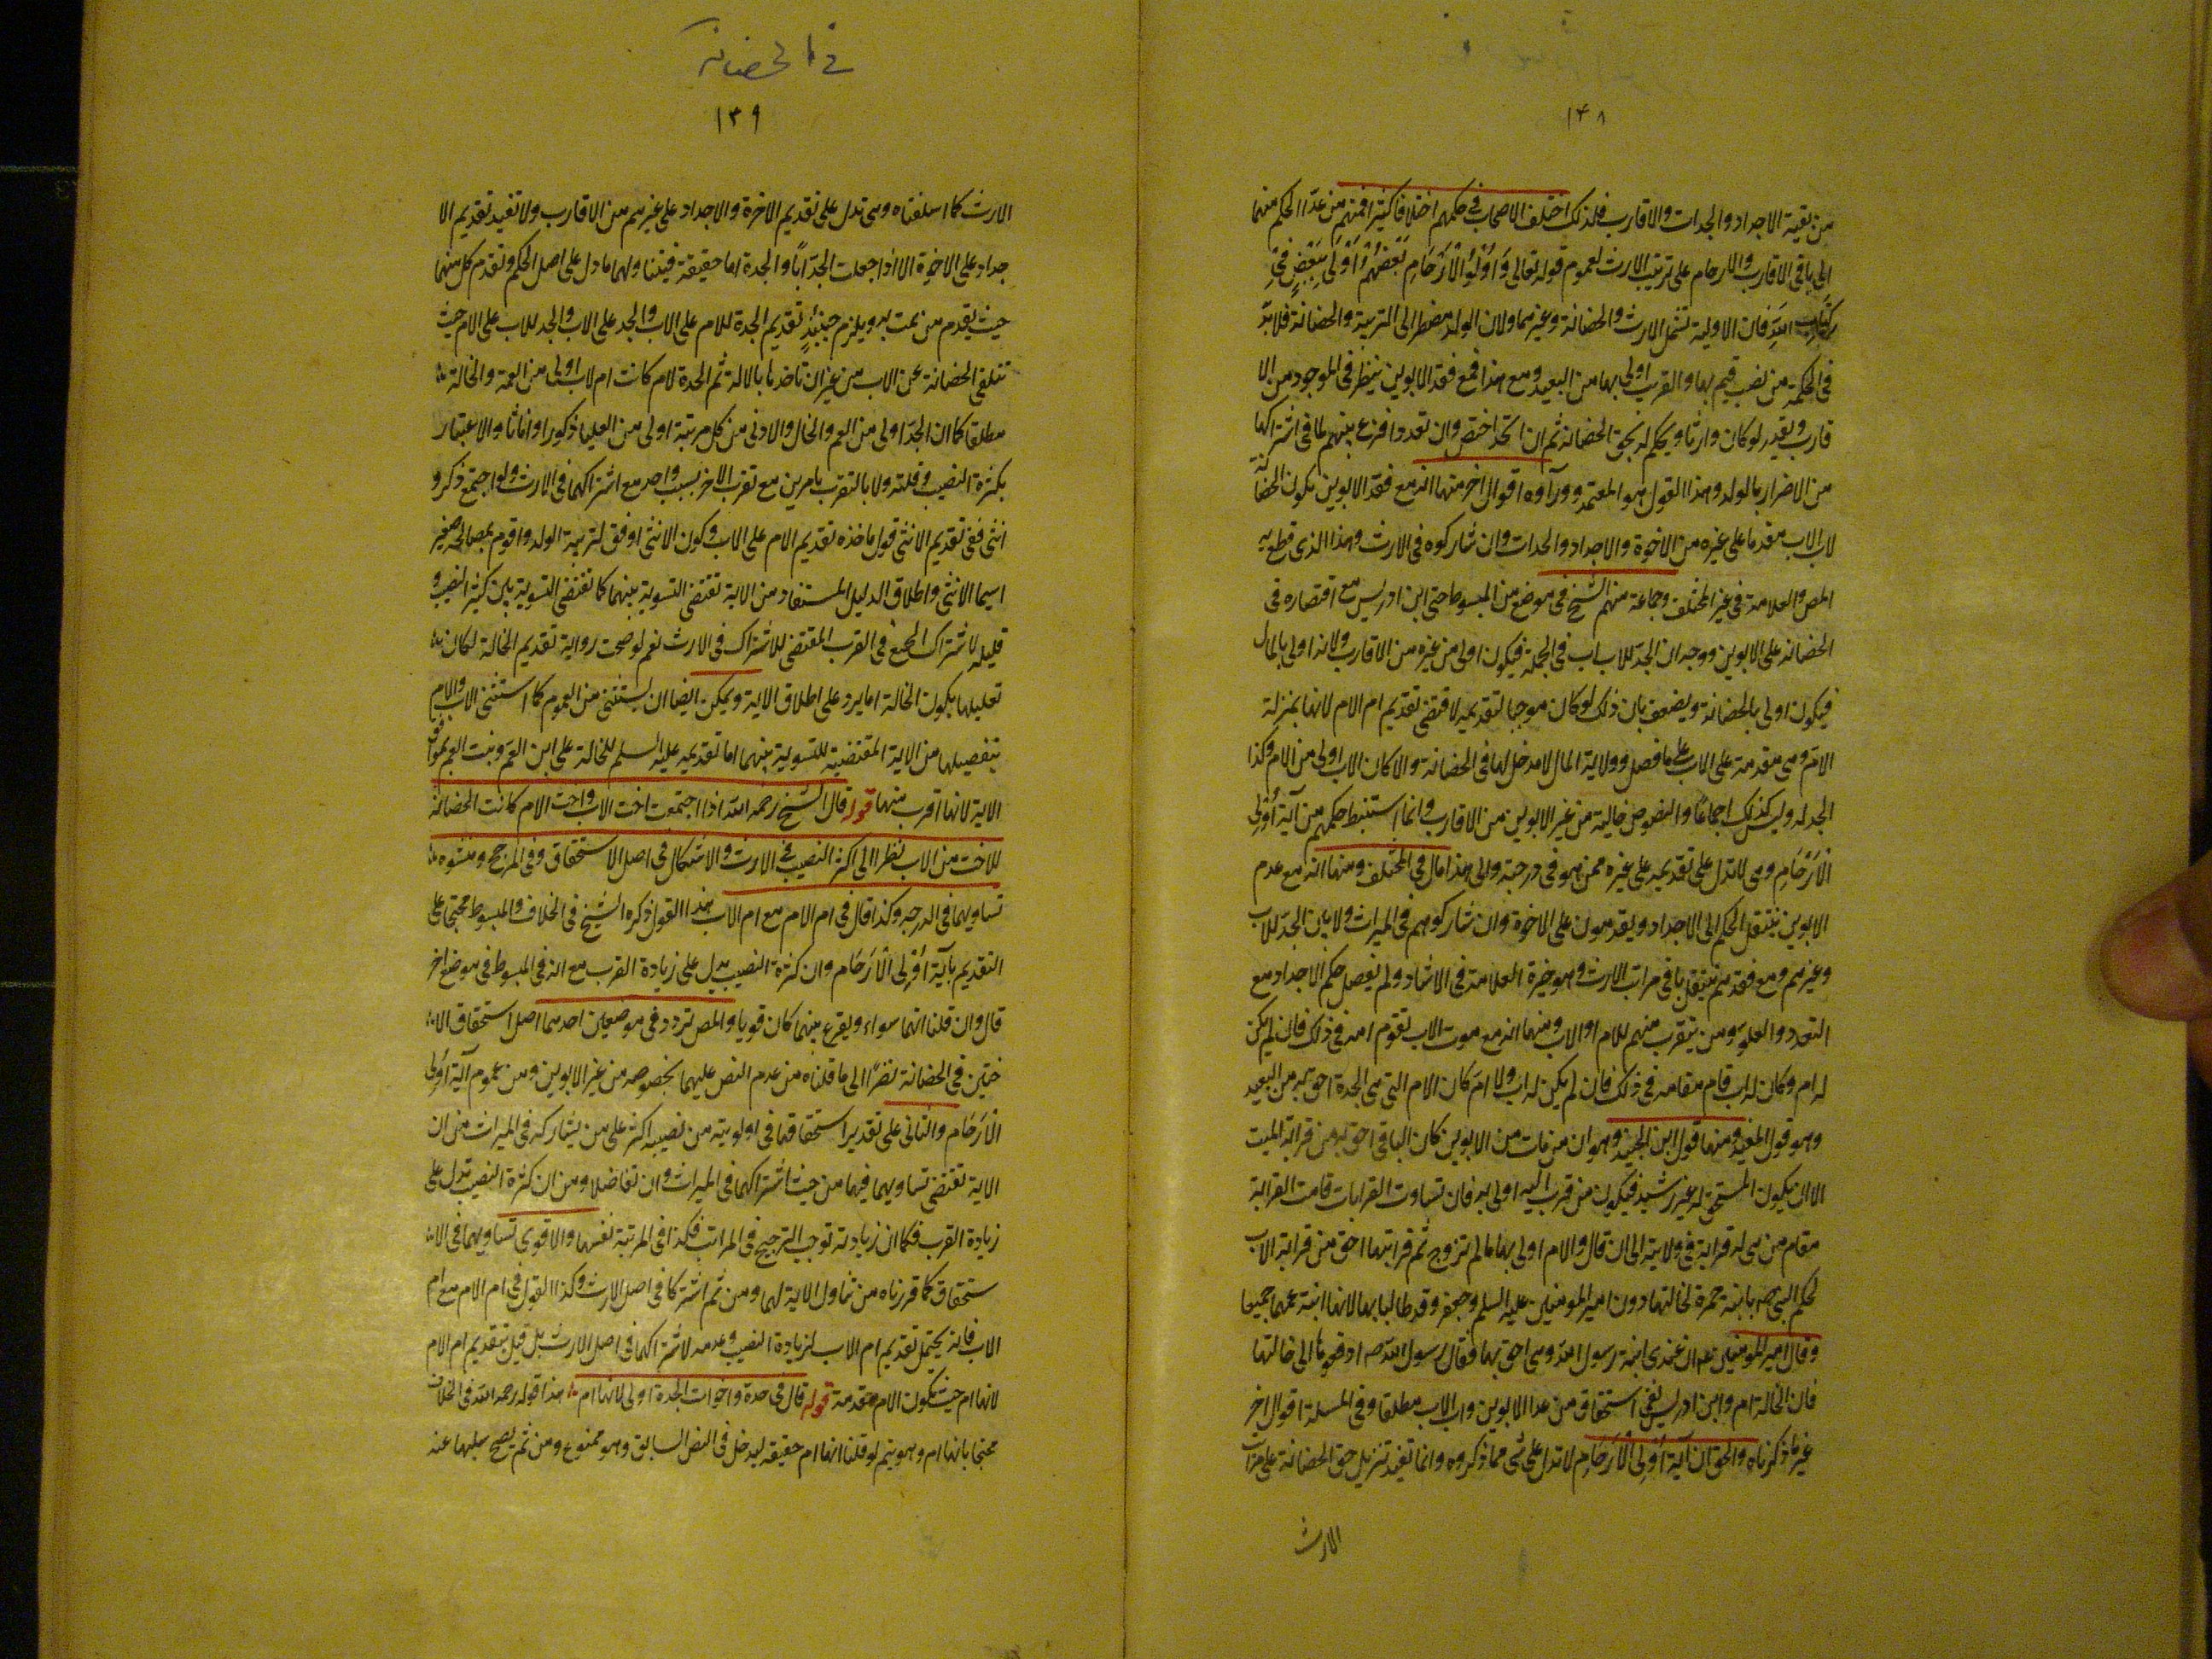 ١٣٨
من بقية الاجداد والجدات والاقارب فلذلك اختلف الاصحاب في حكمهم اختلافا كثيرا فمنهم من عدا الحكم منهما
الى باقي الاقارب والارحام على ترتيب الارث لعموم قوله تعالى وَاُوْلُوا الْاَرْحَامِ بَعْضُهُمْ اَوْلَى بِبَعْضٍ فِي
كِتَابِ اللهِ فان الاولوية تشمل الارث والحضانة وغيرهما ولان الولد مضطر الى التربية والحضانة فلا بدّ
في الحكمة من نصب قيم بها والقريب اولى بها من البعيد ومع هذا فمع فقد الابوين ينظر في الموجود من الا
قارب ويقدر لو كان وارثا ويحكم له بحق الحضانة ثم ان اتحد اختص وان تعدد اقرع بينهم لما في اشتراكها
من الاضرار بالولد وهذا القول هو المعتمد ووراؤه اقوال اخر منها انه مع فقد الابوين يكون الحضانة
لاب الاب مقدما على غيره من الاخوة والاجداد والجدات وان شاركوه في الارث وهذا الذي قطع به
المص والعلامة في غير المختلف وجماعة منهم الشيخ في موضع من المبسوط حتى ابن ادريس مع اقتصاره في
الحضانة على الابوين ووجه ان الجد للاب اب في الجملة فيكون اولى من غيره من الاقارب ولانه اولى بالمال
فيكون اولى بالحضانة ويضعف بان ذلك لو كان موجبا لتقديمه لاقتضى تقديم ام الام لانها بمنزلة
الام وهي مقدمة على الاب على ما فصل وولاية المال لا مدخل لها في الحضانة والا كان الاب اولى من الام وكذا
الجد له وليس كذلك اجماعا والنصوص خالية من غير الابوين من الاقارب وانما استنبط حكمهم من آية اُوْلِى
الْاَرْحَامِ وهي لا تدل على تقديمه على غيره ممن هو في درجته والى هذا مال في المختلف ومنها انه مع عدم
الابوين ينتقل الحكم الى الاجداد ويقدمون على الاخوة وان شاركوهم في الميراث ولا بين الجد للاب
وغيرهم ومع فقدهم ينتقل باقي مراتب الارث وهو خيرة العلامة في الارشاد ولم يفصل حكم الاجداد مع
التعدد والعلو ومن يتقرب منهم للام او الاب ومنها انه مع موت الاب تقوم امه في ذلك فان لم يكن
له ام وكان له اب قام مقامه في ذلك فان لم يكن له اب ولا ام كان الام التي هي الجدة احق به من البعيد
وهو قول المفيد ومنها قول ابن الجنيد وهو ان من مات من الابوين كان الباقي احق به من قرابة الميت
الا ان يكون المستحق له غير رشيد فيكون من قرب اليه اولى به فان تساوت القرابات قامت القرابة
مقام من هي له قرابة في ولايته الى ان قال والام اولى بها ما لم تزوج ثم قرابتها احق من قرابة الاب
لحكم النبي ص بابنة حمزة لخالتها دون امير المؤمنين عليه السلم وجعفر وقد طالبا بها لانها ابنة عمهما جميعا
وقال امير المؤمنين ع ان عندي ابنة رسول الله وهي احق بها فقال رسول الله ص ادفعوها الى خالتها
فان الخالة ام وابن ادريس نفى استحقاق من عدا الابوين واب الاب مطلقا وفي المسئلة اقوال اخر
غير ما ذكرناه والحق ان آية اُوْلِى الْاَرْحَامِ لا تدل على شيء مما ذكروه وانما تفيد تنزيل حق الحضانة على مراتب
الارث
في الحضانة
١٣٩
الارث كما اسلفناه وهي تدل على تقديم الاخوة والاجداد على غيرهم من الاقارب ولا تفيد تقديم الا
جداد على الاخوة الا اذا جعلت الجدّ اباً والجدة اما حقيقة فيتناولهما ما دل على اصل الحكم ولقدم كل منهما
حيث يقدم من يمت به ويلزم حينئذٍ تقديم الجدة للام على الاب والجد على الاب والجد للاب على الام حيث
تتلقى الحضانة عن الاب من غير ان تاخدها بالاولة ثم الجدة لام كانت ام لاب اولى من العمة والخالة
مطلقا كما ان الجد اولى من العم والخال والادنى من كل مرتبة اولى من العليا ذكورا واناثا والاعتبار
بكثرة النصيب وقلته ولا بالتقرب بامرين مع تقرب الاخر بسبب واحد مع اشتراكهما في الارث ولو اجتمع ذكر و
انثى ففي تقديم الانثى قول ماخذه تقديم الام على الاب وكون الانثى اوفق لتربية الولد واقوم بمصالحه
سيما الانثى واطلاق الدليل المستفاد من الاية تقتضي التسوية بينهما كما تقتضي التسوية بين كثير النصيب و
قليله لاشتراك الجميع في القرب المقتضي للاشتراك في الارث نعم لو صحت رواية تقديم الخالة لكان
تعليلها بكون الخالة اما يرد على اطلاق الاية ويمكن ايضا ان يستثنى من العموم كما استثنى الاب والام
بتفصيلها من الاية المقتضية للتسوية بينهما اما تقديمه عليه السلم للخالة على ابن العم وبنت العم
الاية لانها اقرب منهما قوله قال الشيخ رحمه الله اذا اجتمعت اخت الاب واخت الام كانت الحضانة
للاخت من الاب نظرا الى اكثر النصيب في الارث والاشكال في اصل الاستحقاق وفي المرجح ومنشوه
تساويهما في الدرجه وكذا قال في ام الام مع ام الاب هذا القول ذكره الشيخ في الخلاف والمبسوط محتجا على
التقديم بآية اُوْلِى الْاَرْحَام وان كثرة النصيب يدل على زيادة القرب مع انه في المبسوط في موضع اخر
قال وان قلنا انهما سواء ويقرع بينهما كان قويا والمص تردد في موضعين احدهما اصل استحقاق الا
ختين في الحضانة نظرًا الى ما قلناه من عدم النص عليهما بخصوصه من غير الابوين ومن عموم آية اُوْلِى
الْاَرْحَام والثاني على تقدير استحقاقهما في اولويته من نصيبه اكثر على من يشاركه في الميراث من ان
الاية تقتضي تساويهما فيهما من حيث اشتراكهما في الميراث وان تفاضلا ومن ان كثرة النصيب تدل على
زيادة القرب فكما ان زيادته توجب الترجيح في المراتب فكذا في المرتبة نفسها والاقوى تساويهما في الا
ستحقاق كما قررناه من تناول الاية لهما ومن ثم اشتركا في اصل الارث وكذا القول في ام الام مع ام
الاب فانه يحتمل تقديم ام الاب لزيادة النصيب وعدمه لاشتراكهما في اصل الارث بل قيل بتقديم ام الام
لانها ام حيث تكون الام مقدمة قوله قال في جدة واخوات الجدة اولى لانها ام هذا قوله رحمه الله في الخلاف
محتجا بانها ام وهو يتم لو قلنا انها ام حقيقة ليدخل في النص السابق وهو ممنوع ومن ثم يصح سلبها عنه